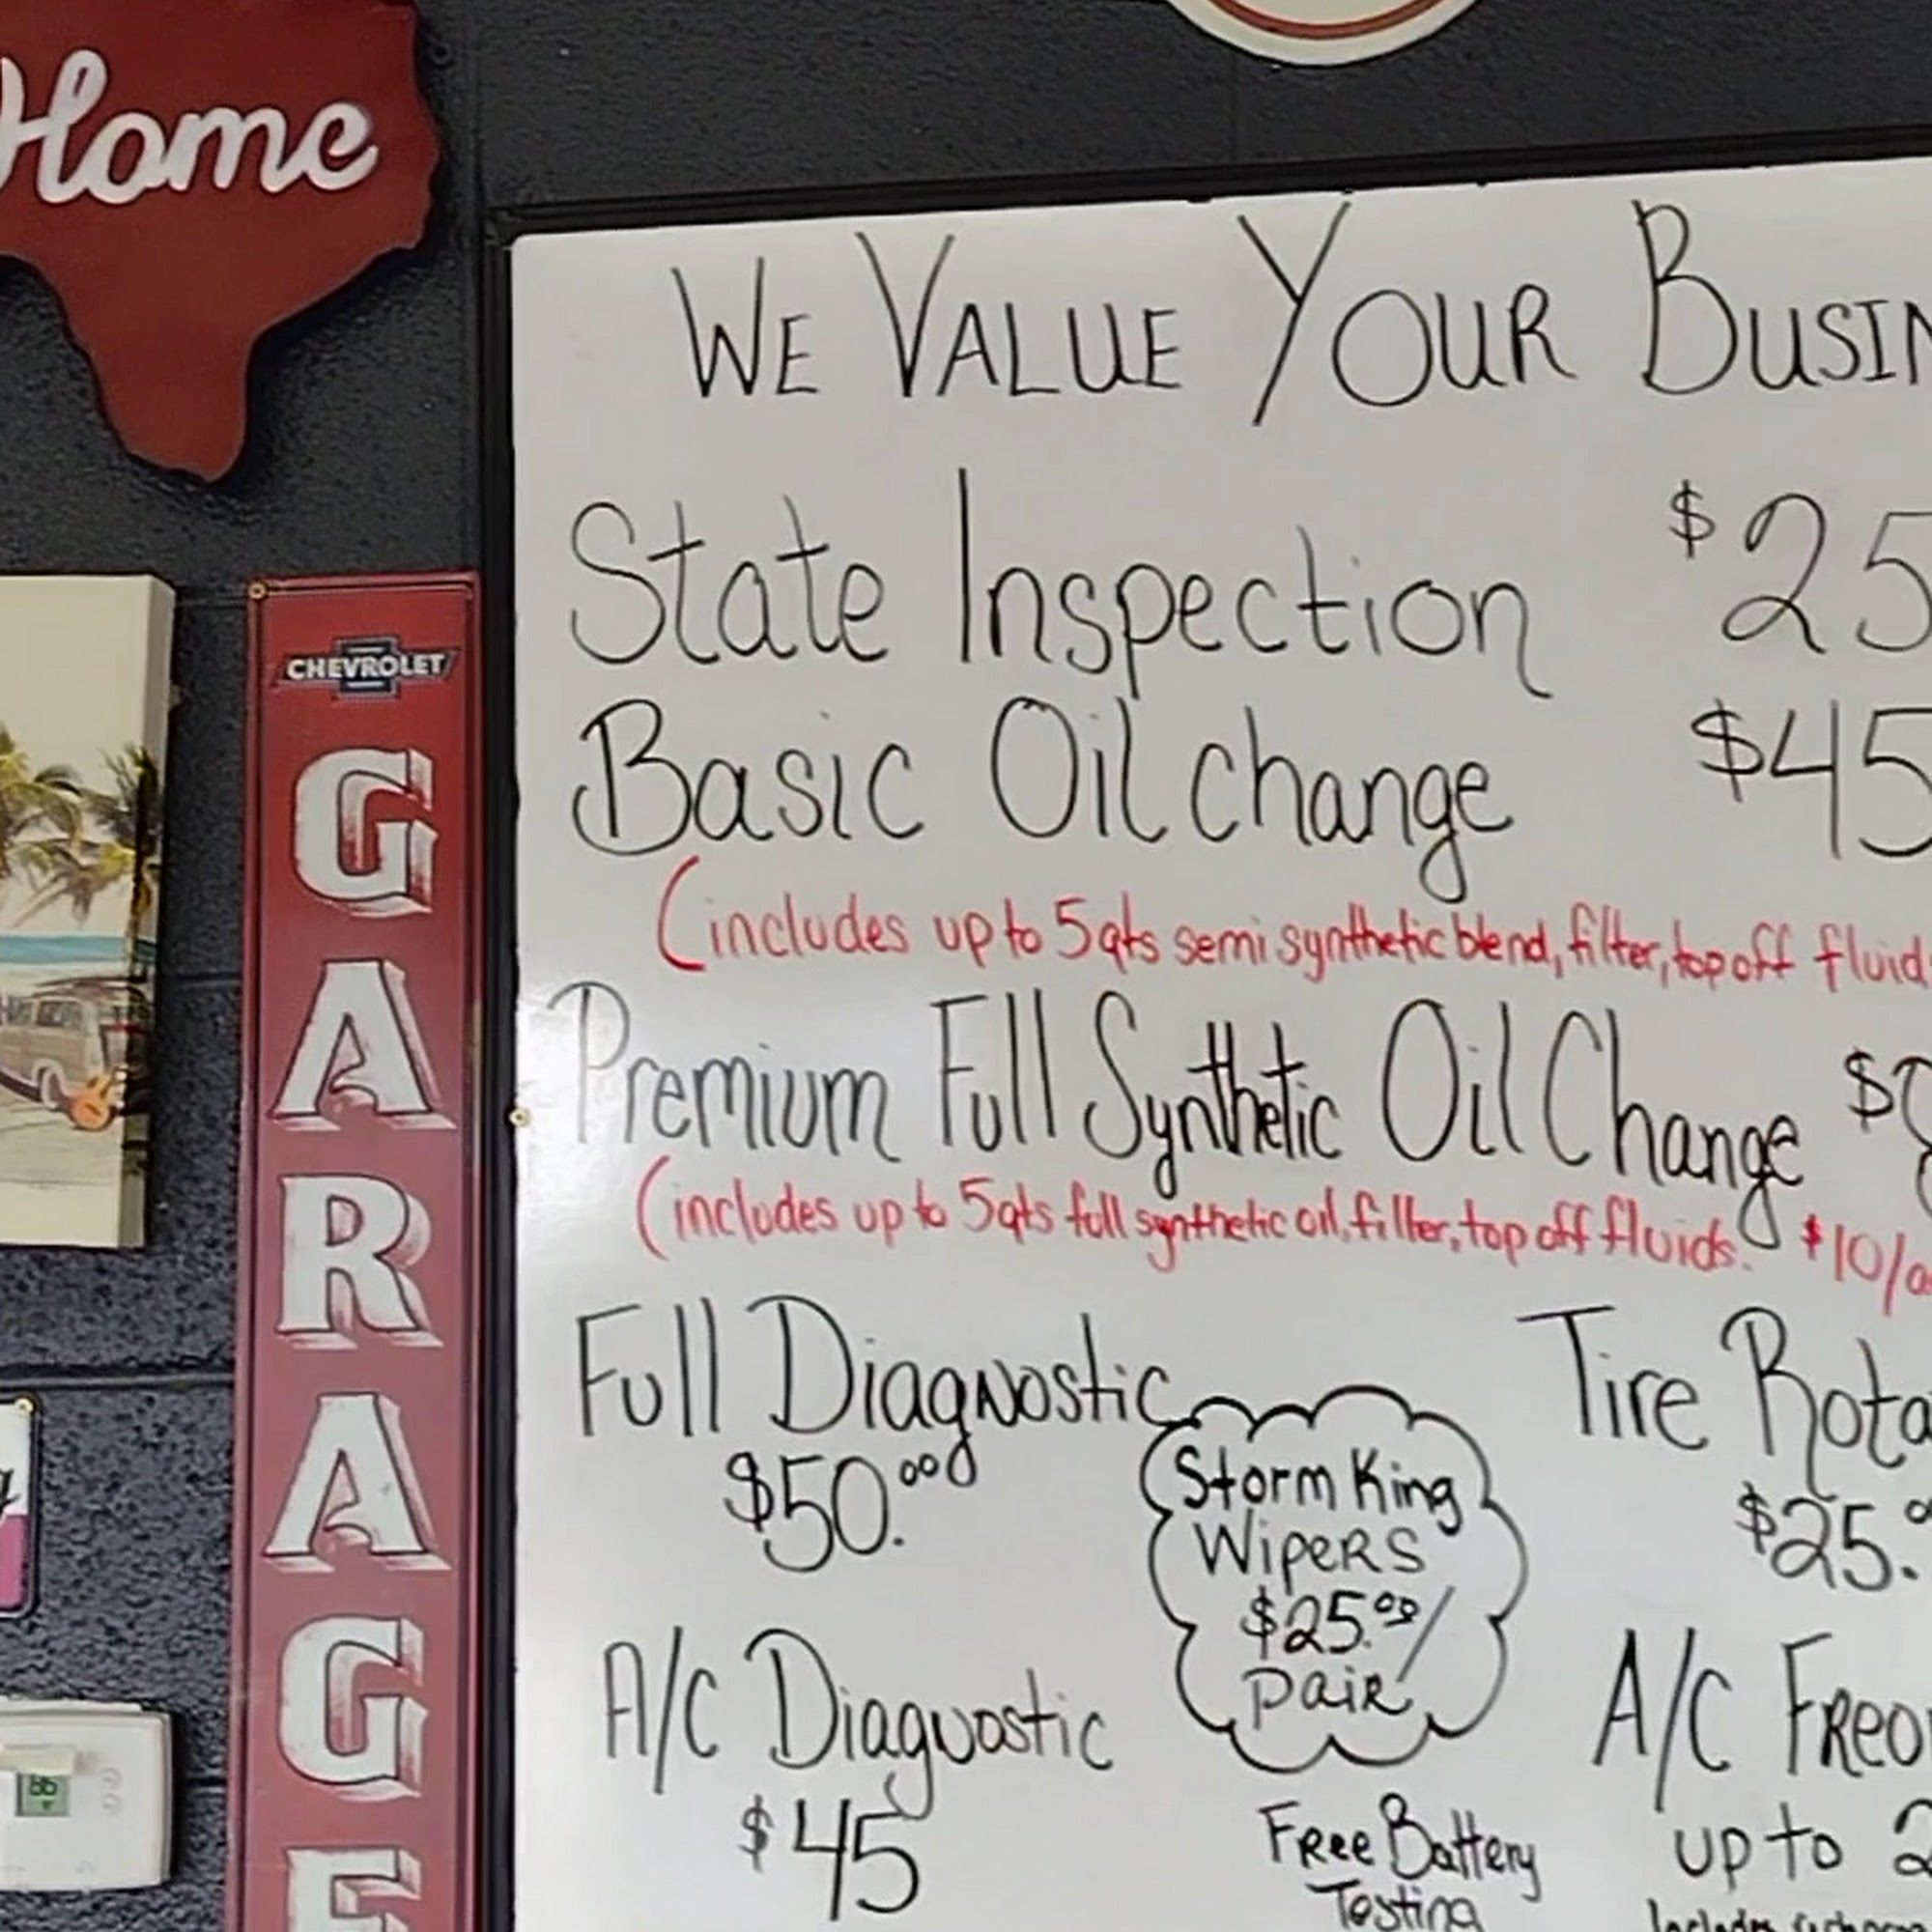 Home
CHEVROLET
GARAGE
WE VALUE YOUR BUSIN
State Inspection $25
Basic Oil change $45
(includes up to 5qts semi synthetic blend, filter, top off fluid
Premium Full Synthetic Oil Change $
(includes up to 5qts full synthetic oil, filter, top off fluids. $10/
Full Diagnostic
$50.00
Storm King
Wipers
$25.00/
pair
Tire Rota
$25.
A/C Diagnostic
$45
Free Battery
Testing
A/C Freon
up to 2